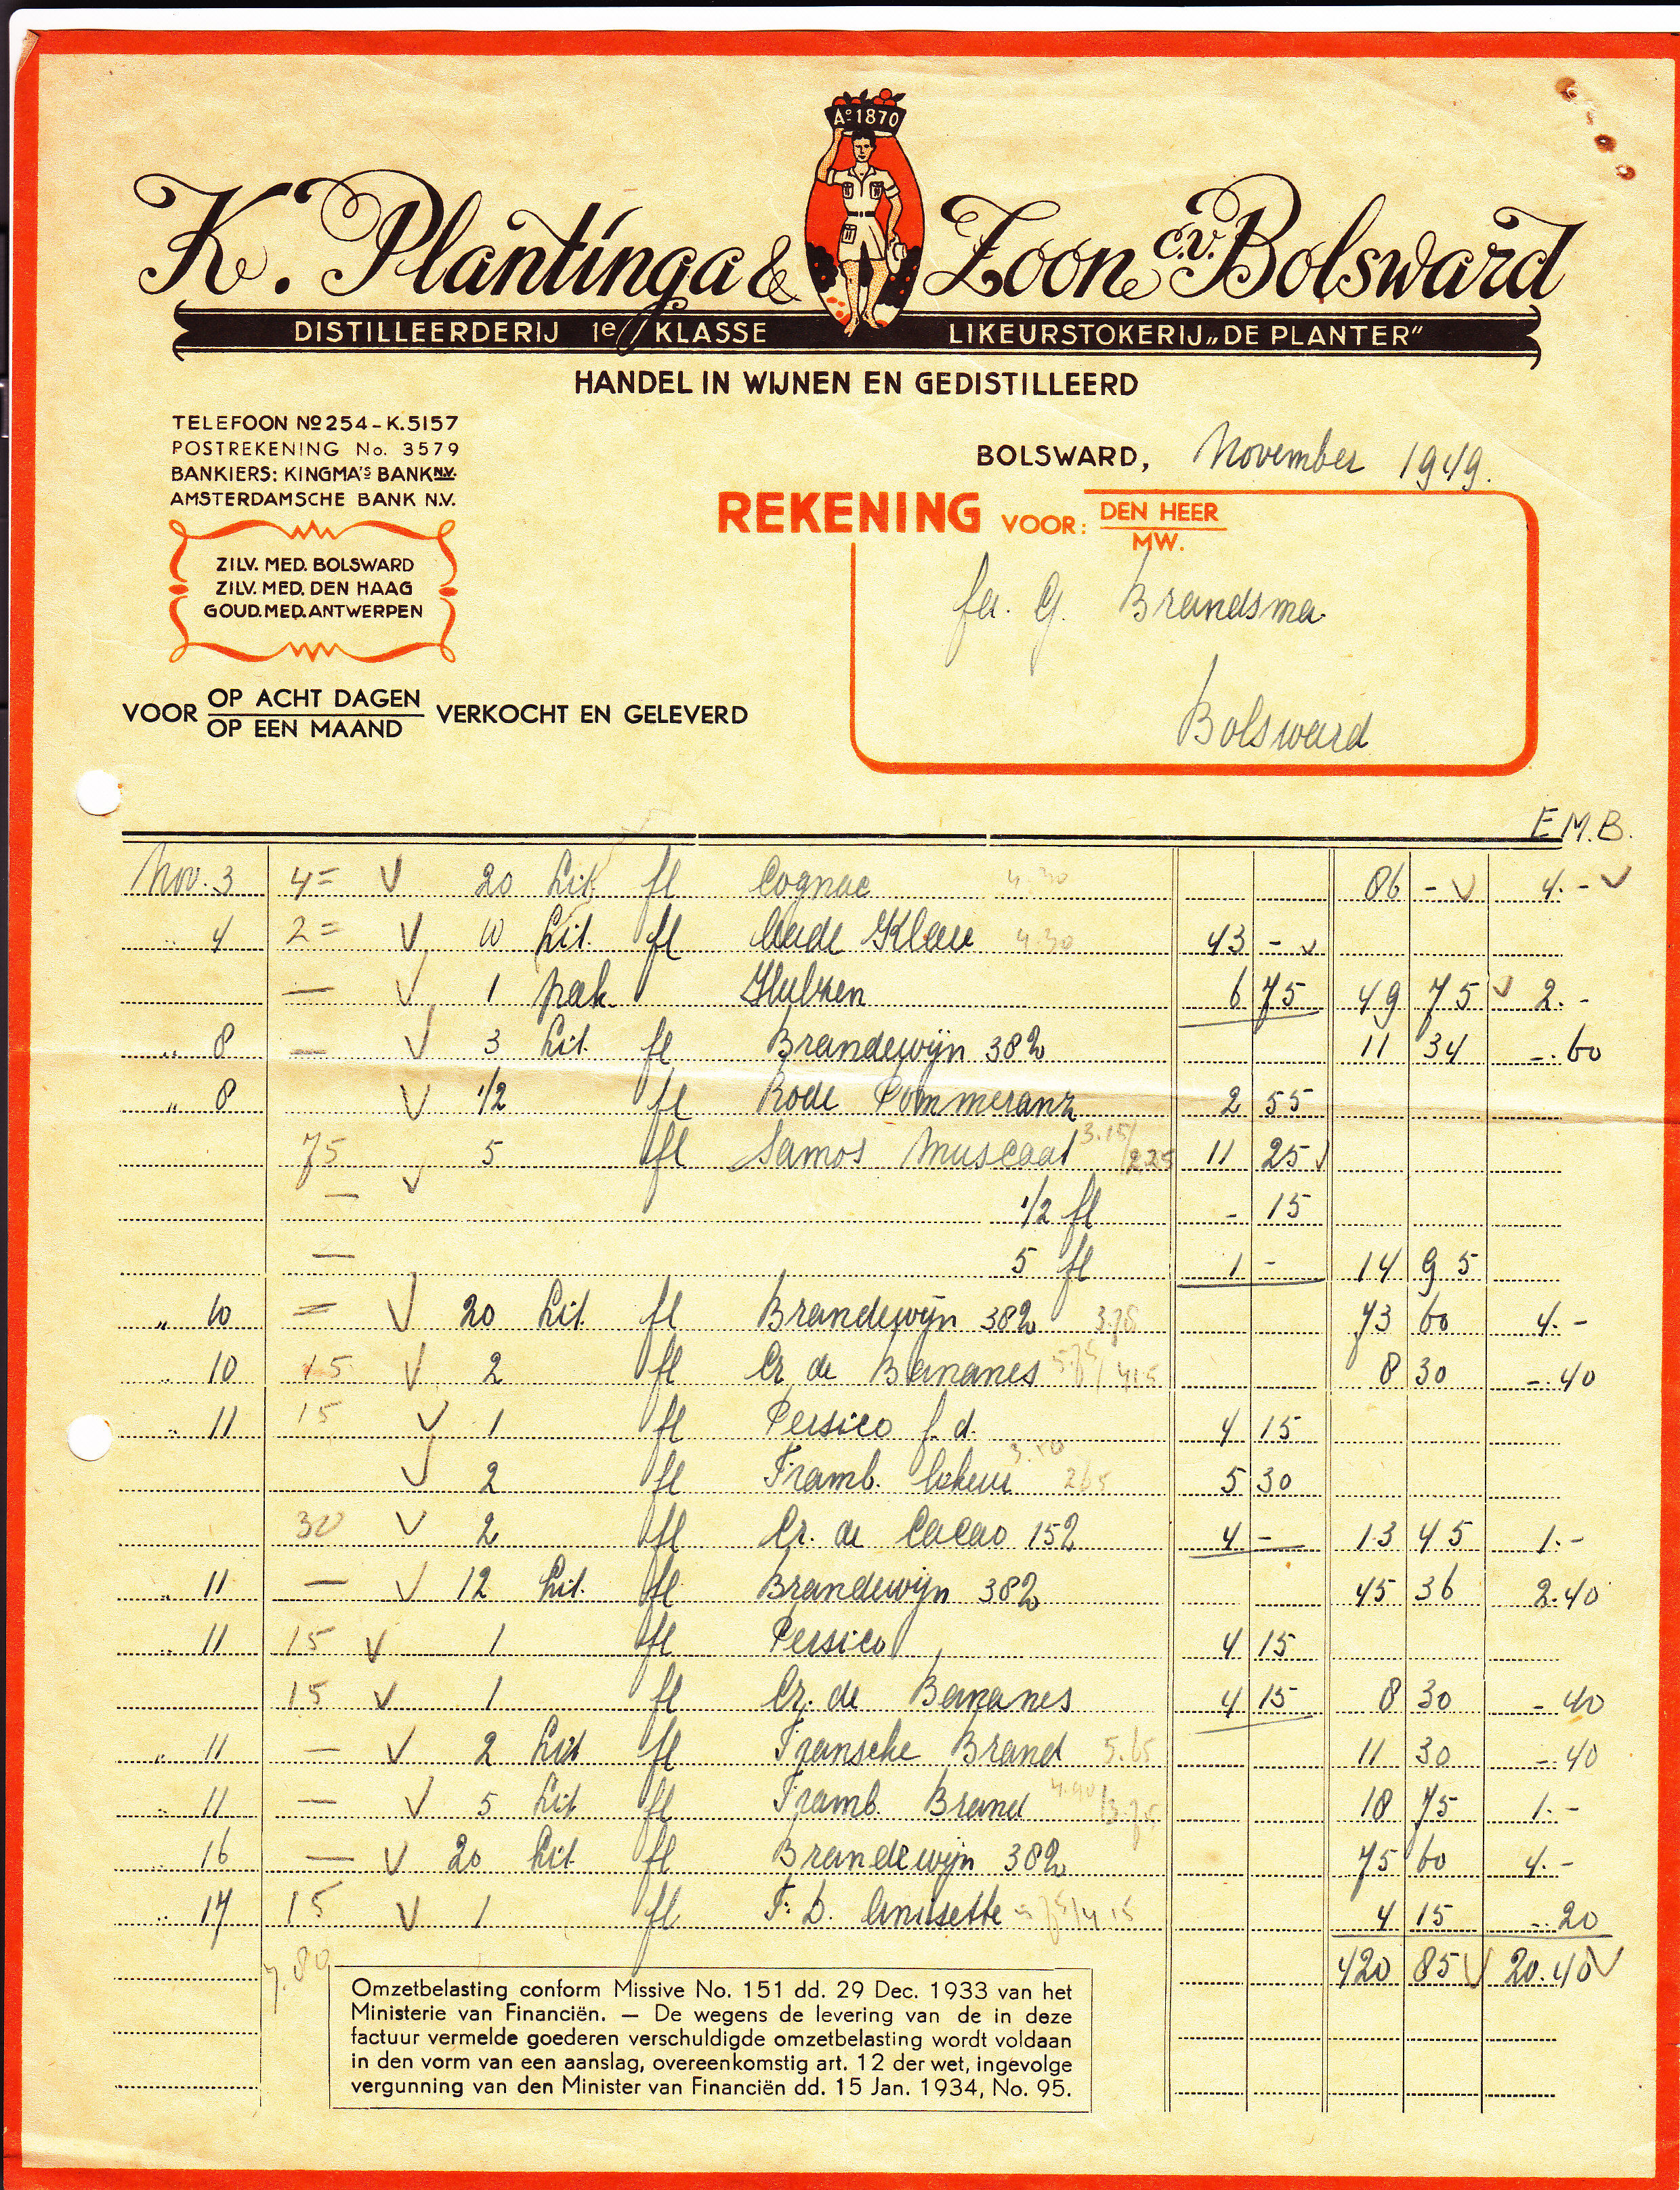 Aº 1870
K. Plantinga & Zoon C.V. Bolsward
DISTILLEERDERIJ 1e KLASSE LIKEURSTOKERIJ „DE PLANTER”
HANDEL IN WIJNEN EN GEDISTILLEERD
TELEFOON Nº 254 - K.5157
POSTREKENING No. 3579
BANKIERS: KINGMA'S BANK N.V.
AMSTERDAMSCHE BANK N.V.
ZILV. MED. BOLSWARD
ZILV. MED. DEN HAAG
GOUD. MED. ANTWERPEN
BOLSWARD, November 1949.
REKENING VOOR: DEN HEER
MW.
fa. G. Brandsma
Bolsward
VOOR OP ACHT DAGEN
OP EEN MAAND VERKOCHT EN GELEVERD
E.M.B.
Nov. 3 4= V 20 Lit. fl Cognac 4.30 86 - V 4.- V
" 4 2= V 10 Lit. fl Oude Klare 4.30 43 - V
— V 1 pak. 6 75 49 75 V 2.-
" 8 — V 3 Lit. fl Brandewijn 38% 11 34 -.60
" 8 V 1/2 fl Rode Pommeranz 2 55
75 V 5 fl Samos Muscaat 3.15/2.25 11 25 V
— 1/2 fl - 15
— 5 fl 1 - 14 95
" 10 = V 20 Lit. fl Brandewijn 38% 3.78 73 60 4.-
" 10 15 V 2 fl Cr. de Bananes 5.75/4.15 8 30 -.40
" 11 15 V 1 fl Persico f.d. 4 15
V 2 fl Framb. likeur 3.50 2.65 5 30
30 V 2 fl Cr. de Cacao 15% 4 - 13 45 1.-
" 11 — V 12 Lit. fl Brandewijn 38% 45 36 2.40
" 11 15 V 1 fl Persico 4 15
15 V 1 fl Cr. de Bananes 4 15 8 30 -.40
" 11 — V 2 Lit fl Fransche Brand 5.65 11 30 -.40
" 11 — V 5 Lit fl Framb. Brand 4.90/3.75 18 75 1.-
" 16 — V 20 Lit fl Brandewijn 38% 75 60 4.-
" 17 15 V 1 fl F.D. Anisette 5.75/4.15 4 15 -.20
7.80 420 85 V 20.40 V
Omzetbelasting conform Missive No. 151 dd. 29 Dec. 1933 van het
Ministerie van Financiën. — De wegens de levering van de in deze
factuur vermelde goederen verschuldigde omzetbelasting wordt voldaan
in den vorm van een aanslag, overeenkomstig art. 12 der wet, ingevolge
vergunning van den Minister van Financiën dd. 15 Jan. 1934, No. 95.